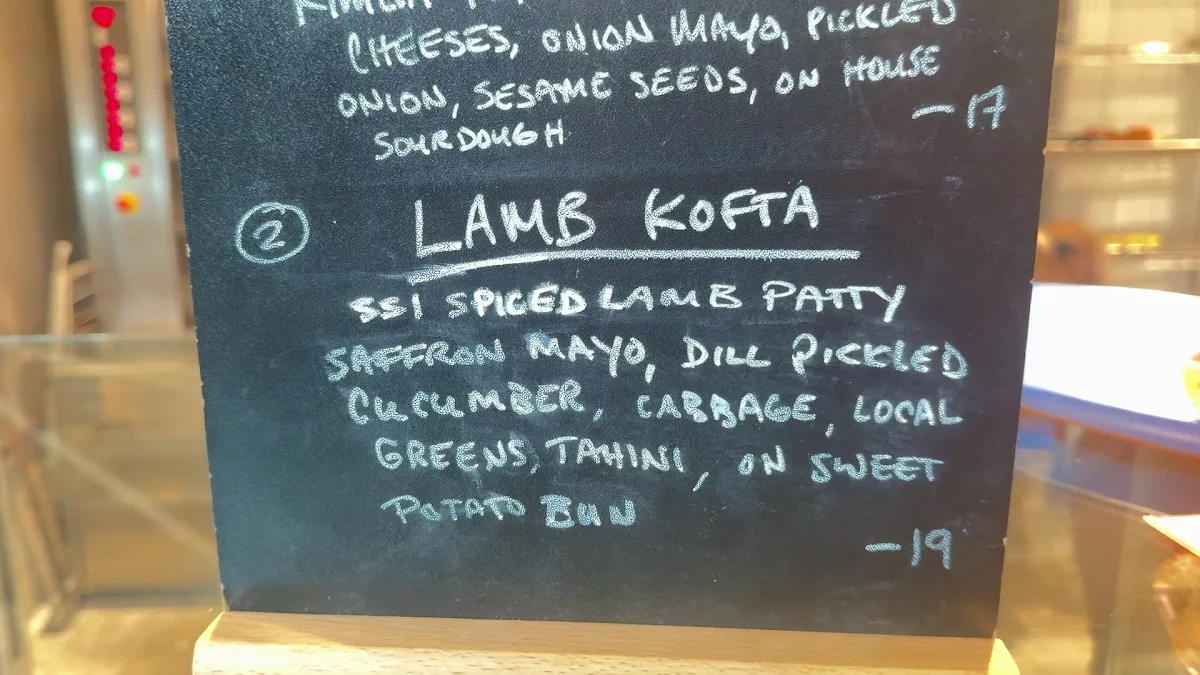 CHEESES, ONION MAYO, PICKLED
ONION, SESAME SEEDS, ON HOUSE
SOURDOUGH
-17
2
LAMB KOFTA
SSI SPICED LAMB PATTY
SAFFRON MAYO, DILL PICKLED
CUCUMBER, CABBAGE, LOCAL
GREENS, TAHINI, ON SWEET
POTATO BUN
-19